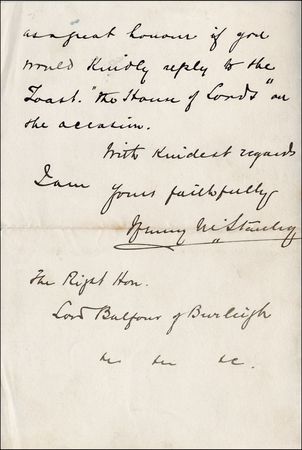 as a great honour if you
would kindly reply to the
Toast. "the House of Lords" on
the occasion.
With kindest regards
I am
Yours faithfully
Henry M Stanley
The Right Hon.
Lord Balfour of Burleigh
&c &c &c.